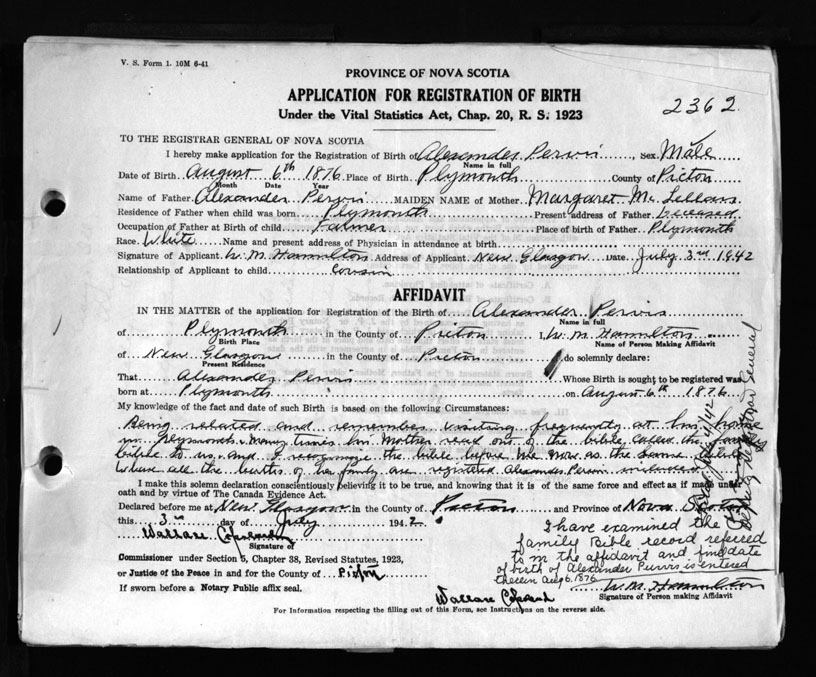 V. S. Form 1. 10M 6-41
PROVINCE OF NOVA SCOTIA
APPLICATION FOR REGISTRATION OF BIRTH
2362
Under the Vital Statistics Act, Chap. 20, R. S. 1923
TO THE REGISTRAR GENERAL OF NOVA SCOTIA
I hereby make application for the Registration of Birth of Alexander Pervis, Sex Male
Name in full
Date of Birth August 6th 1876 Place of Birth Plymouth County of Pictou
Month Date Year
Name of Father Alexander Pervis MAIDEN NAME of Mother Margaret Mc Lellan
Residence of Father when child was born Plymouth Present address of Father Deceased
Occupation of Father at Birth of child Farmer Place of birth of Father Plymouth
Race White Name and present address of Physician in attendance at birth
Signature of Applicant W. M. Hamilton Address of Applicant New Glasgow Date July 3rd 1942
Relationship of Applicant to child Cousin
AFFIDAVIT
IN THE MATTER of the application for Registration of the Birth of Alexander Pervis
Name in full
of Plymouth in the County of Pictou I, W. M. Hamilton
Birth Place Name of Person Making Affidavit
of New Glasgow in the County of Pictou do solemnly declare:
Present Residence
That Alexander Pervis Whose Birth is sought to be registered was
born at Plymouth on August 6th 1876
My knowledge of the fact and date of such Birth is based on the following Circumstances:
Being related and remember visiting frequently at his home
in Plymouth. Many times his Mother read out of the bible called the family
bible to us, and I recognize the bible before me now as the same bible
Where all the births of her family are registered Alexander Pervis
I make this solemn declaration conscientiously believing it to be true, and knowing that it is of the same force and effect as if made under
oath and by virtue of The Canada Evidence Act.
Declared before me at New Glasgow in the County of Pictou and Province of Nova Scotia
this 3rd day of July 1942.
Wallace
Signature of
Commissioner under Section 5, Chapter 38, Revised Statutes, 1923,
or Justice of the Peace in and for the County of Pictou
If sworn before a Notary Public affix seal.
I have examined the
family Bible record referred
to in the affidavit and find date
of birth of Alexander Purvis is entered
therein Aug 6. 1876
W. M. Hamilton
Signature of Person making Affidavit
Wallace
For Information respecting the filling out of this Form, see Instructions on the reverse side.
Deputy Registrar General